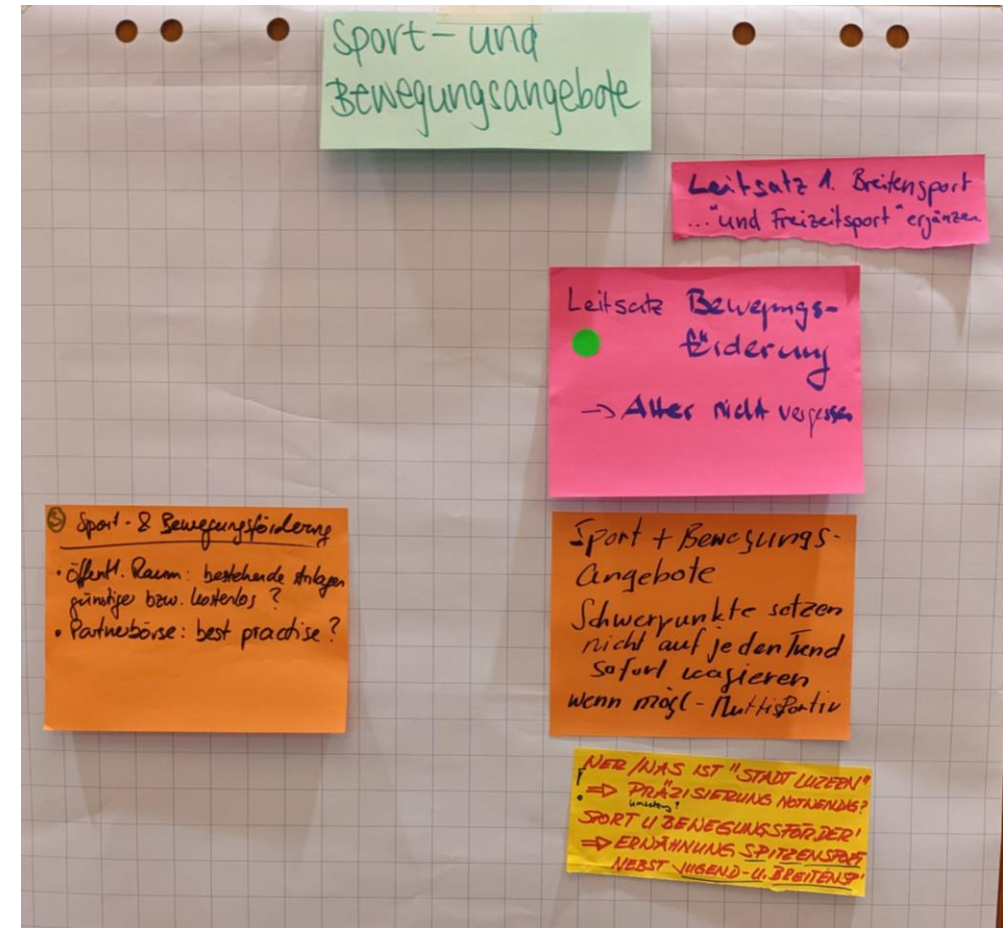 Sport- und
Bewegungsangebote
Leitsatz 1. Breitensport
..."und Freizeitsport" ergänzen
Leitsatz Bewegungs-
förderung
→ Alter nicht vergessen
③ Sport- & Bewegungsförderung
• öffentl. Raum: bestehende Anlagen
günstiger bzw. kostenlos?
• Partnerbörse: best practise?
Sport + Bewegungs-
angebote
Schwerpunkte setzen
nicht auf jeden Trend
sofort reagieren
wenn mögl - Multisportiv
WER/WAS IST "STADT LUZERN"
⇒ PRÄZISIERUNG NOTWENDIG?
SPORT U BEWEGUNGSFÖRDER'
⇒ ERWÄHNUNG SPITZENSPORT
NEBST JUGEND- U. BREITENSP'